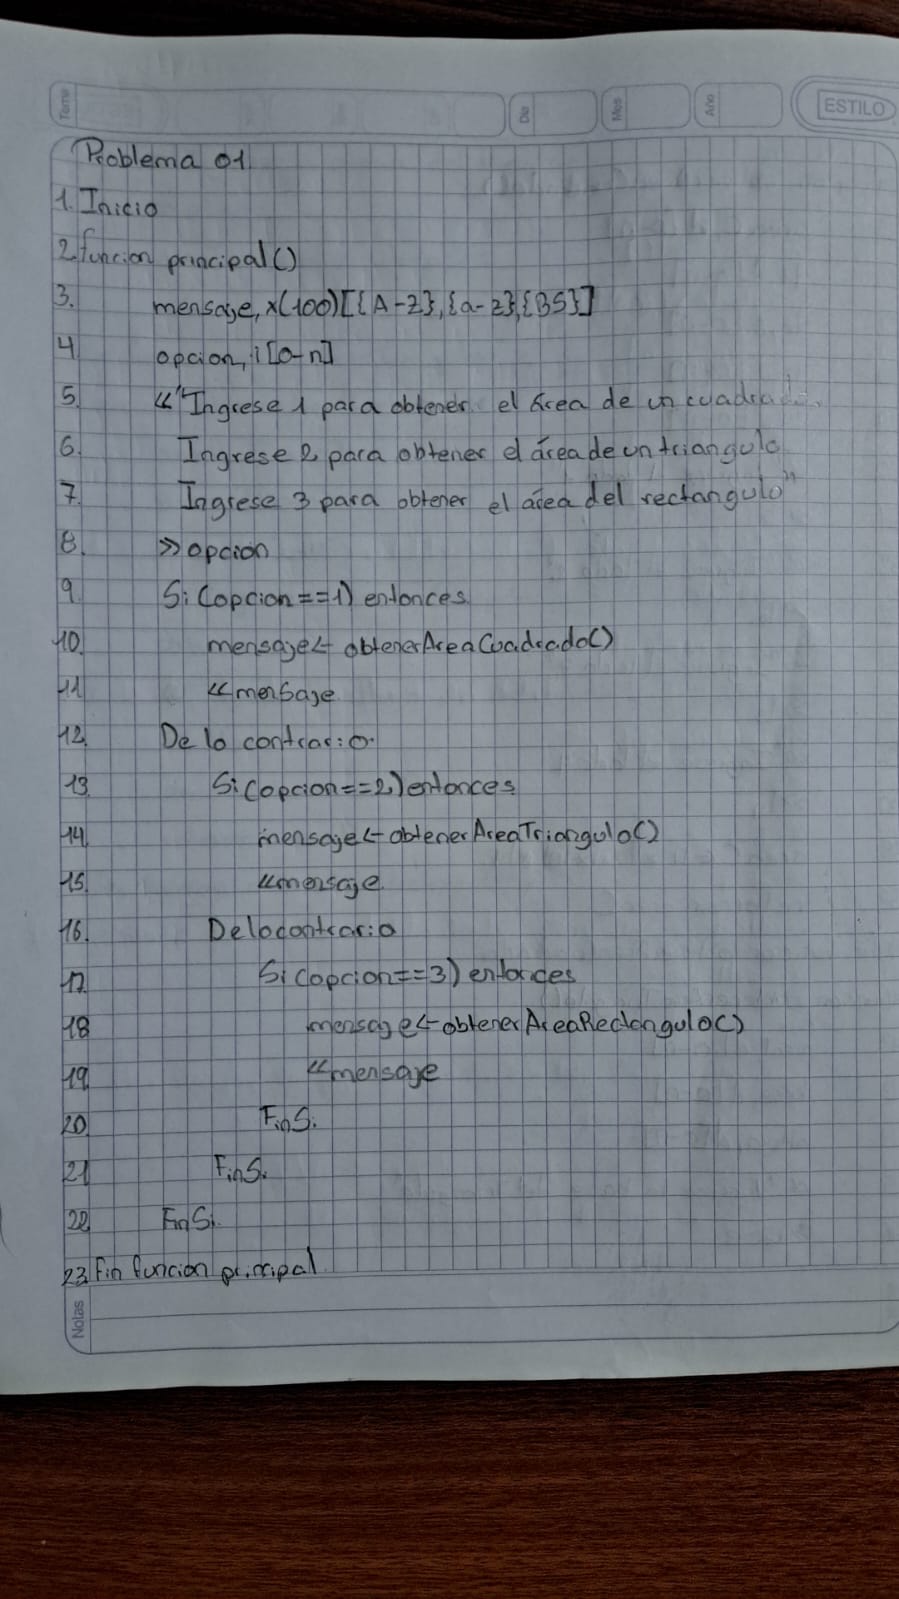 Tema
Dia
Mes
Año
ESTILO
Problema 01
1. Inicio
2. funcion principal()
3. mensaje, x(100)[{A-Z},{a-z},{BS}]
4 opcion, i [0-n]
5. «"Ingrese 1 para obtener el área de un cuadrado
6. Ingrese 2 para obtener el área de un triangulo
7. Ingrese 3 para obtener el area del rectangulo"
8. »opcion
9. Si (opcion==1) entonces
10. mensaje← obtenerAreaCuadrado()
11 «mensaje
12. De lo contrario.
13 Si (opcion==2) entonces
14. mensaje← obtenerAreaTriangulo()
15. «mensaje
16. De lo contrario
17. Si (opcion==3) entonces
18 mensaje←obtenerAreaRectangulo()
19. «mensaje
20. FinSi
21 FinSi
22 FinSi
23. Fin funcion principal
Notas